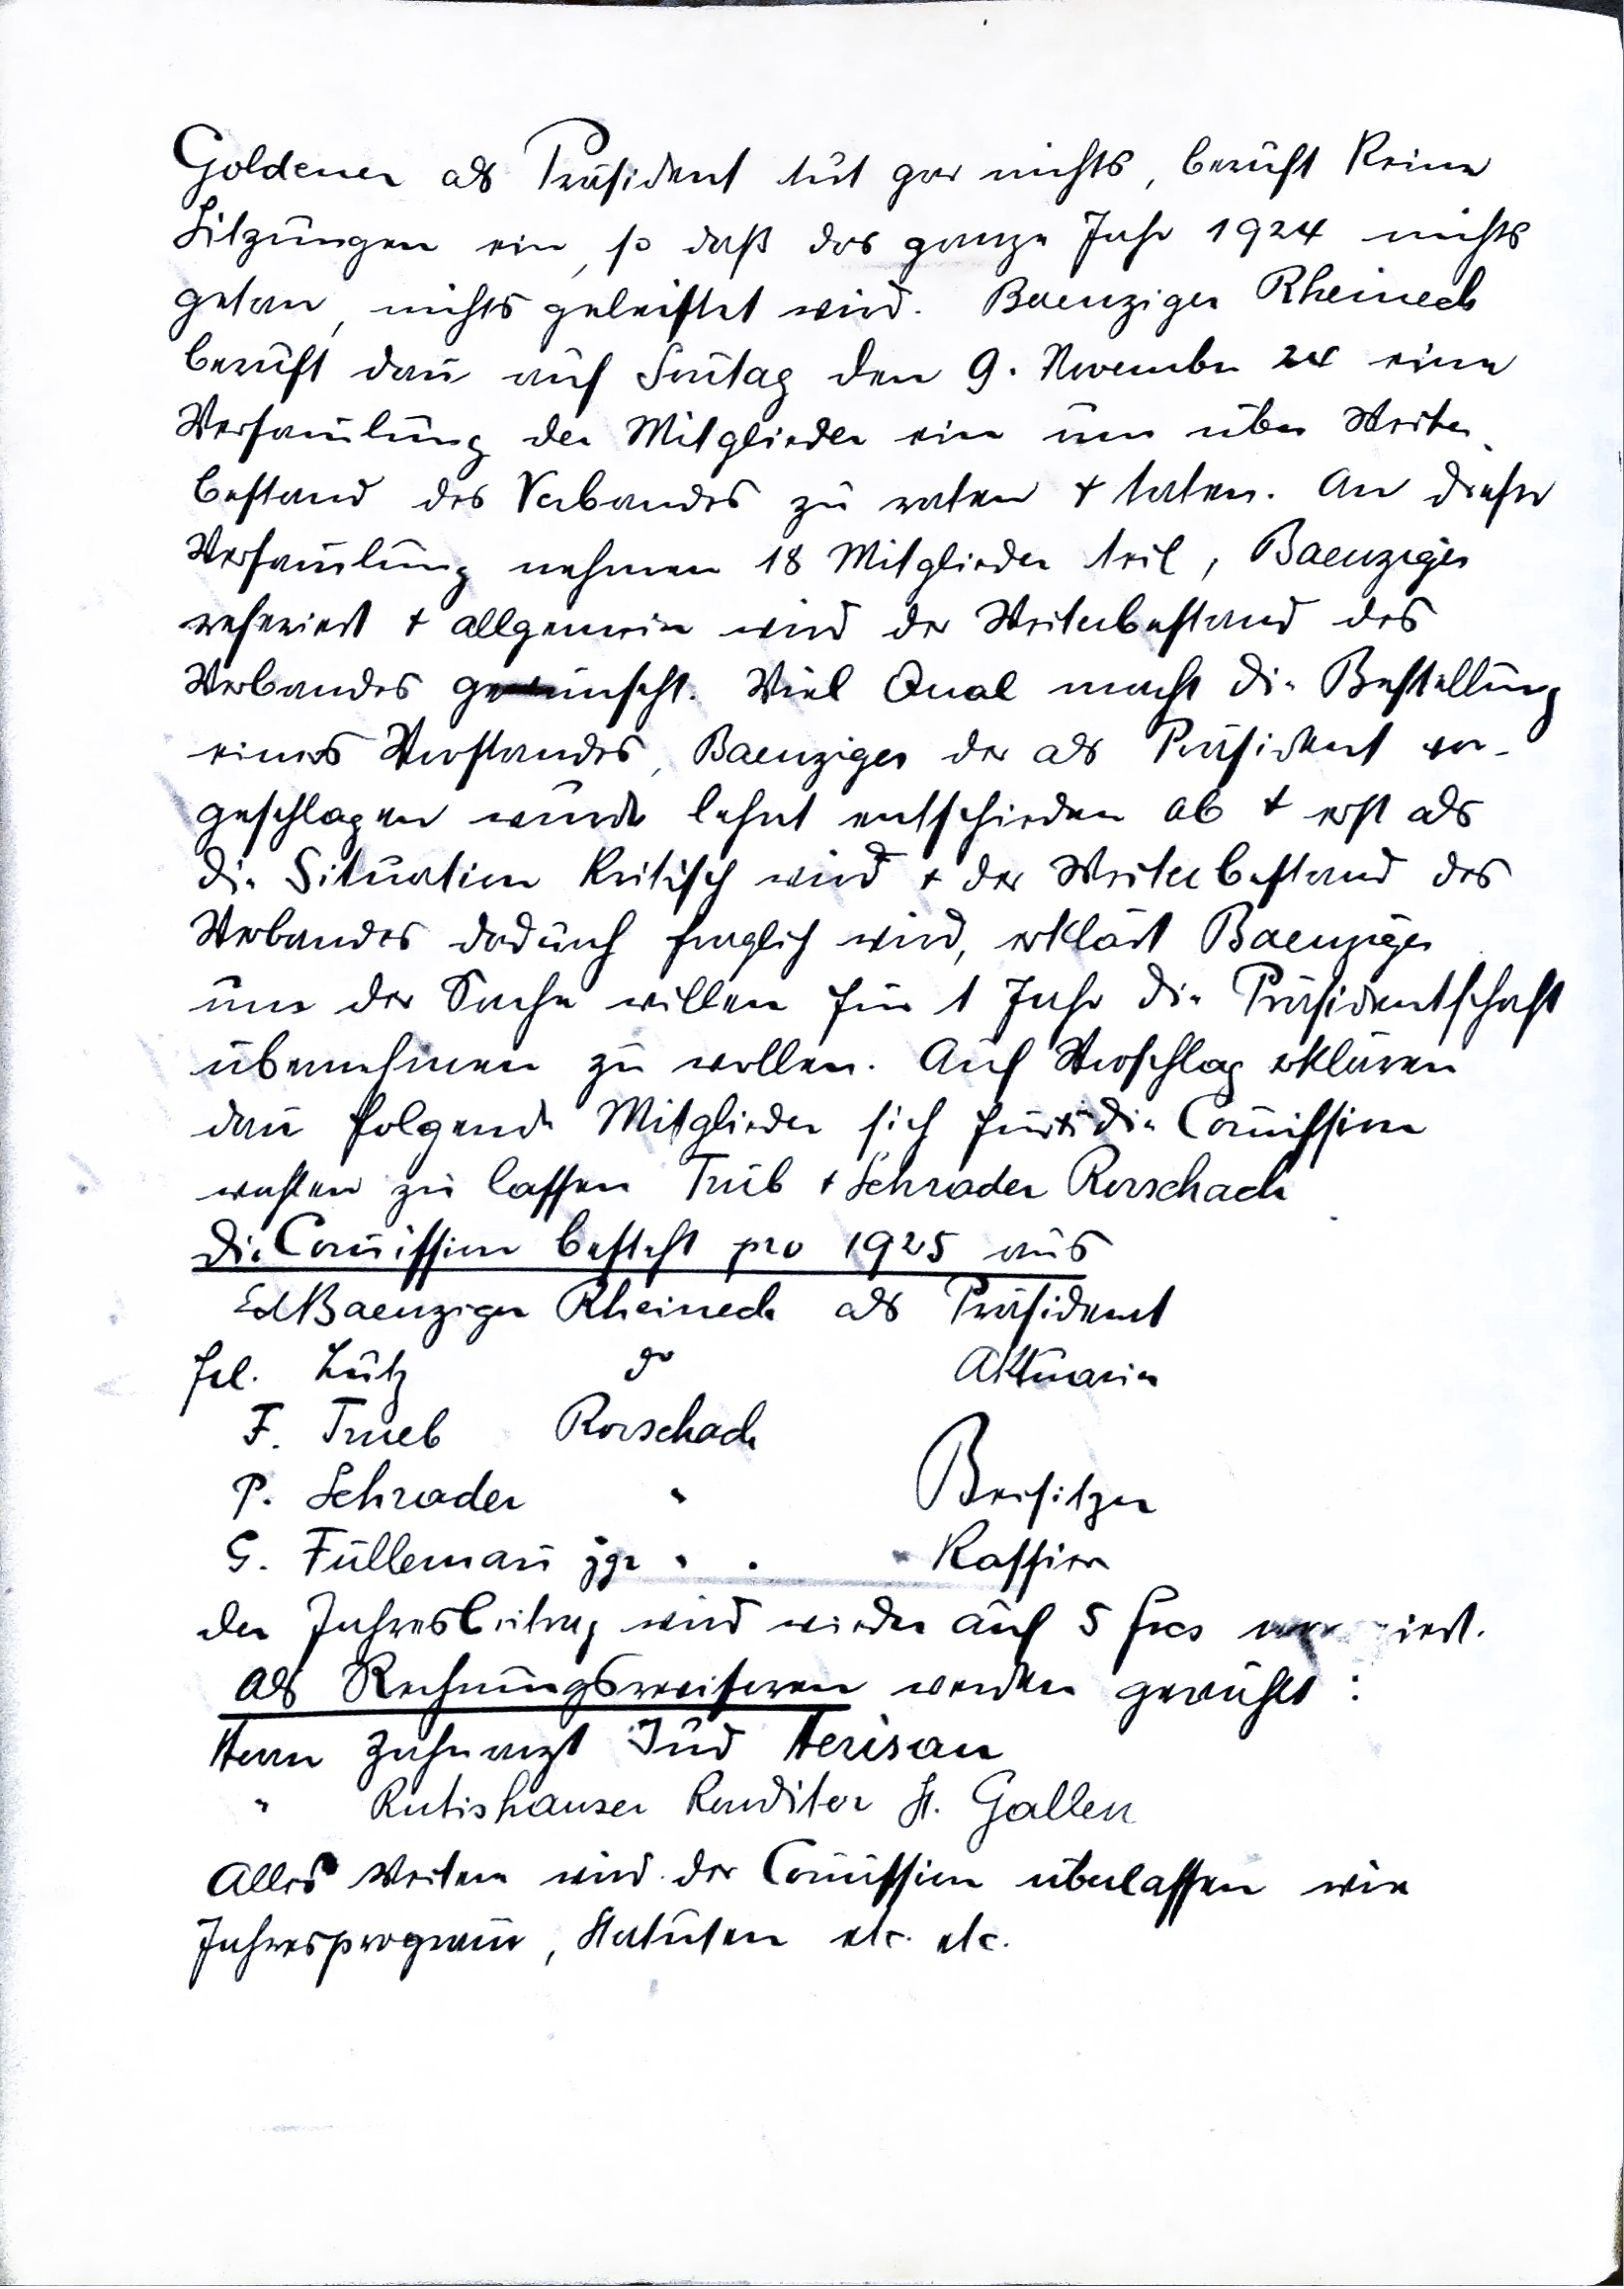 Goldener als Präsident tut gar nichts, beruft keine
Sitzungen ein, so daß das ganze Jahr 1924 nichts
getan, nichts geleistet wird. Baenziger Rheineck
beruft dan̄ auf Son̄tag den 9. November 24 eine
Versam̄lung der Mitglieder ein um über Weiter
bestand des Verbandes zu raten + taten. An dieser
Versam̄lung nehmen 18 Mitglieder teil, Baenziger
referiert + allgemein wird der Weiterbestand des
Verbandes gewünscht. Viel Qual macht die Bestellung
eines Vorstandes, Baenziger der als Präsident vor-
geschlagen wurde lehnt entschieden ab + erst als
die Situation kritisch wird + der Weiterbestand des
Verbandes dadurch fraglich wird, erklärt Baenziger
um der Sache willen für 1 Jahr die Präsidentschaft
übernehmen zu wollen. Auf Vorschlag erklären
dan̄ folgende Mitglieder sich für die Com̄ission
wählen zu lassen Trüb + Schrader Rorschach
Die Com̄ission besteht pro 1925 aus
Ed Baenziger Rheineck als Präsident
Frl. Lutz do Aktuarin
F. Trueb Rorschach
P. Schrader " Beisitzer
G. Fülleman̄ jgr " . " Kassier
Der Jahresbeitrag wird wieder auf 5 frcs
Als Rechnungsrevisoren werden gewählt:
Herr Zahnarzt Jüd Herisau
" Rutishauser Konditor St. Gallen
Alles Weitere wird der Com̄ission überlassen wie
Jahresprogram̄, Statuten etc. etc.